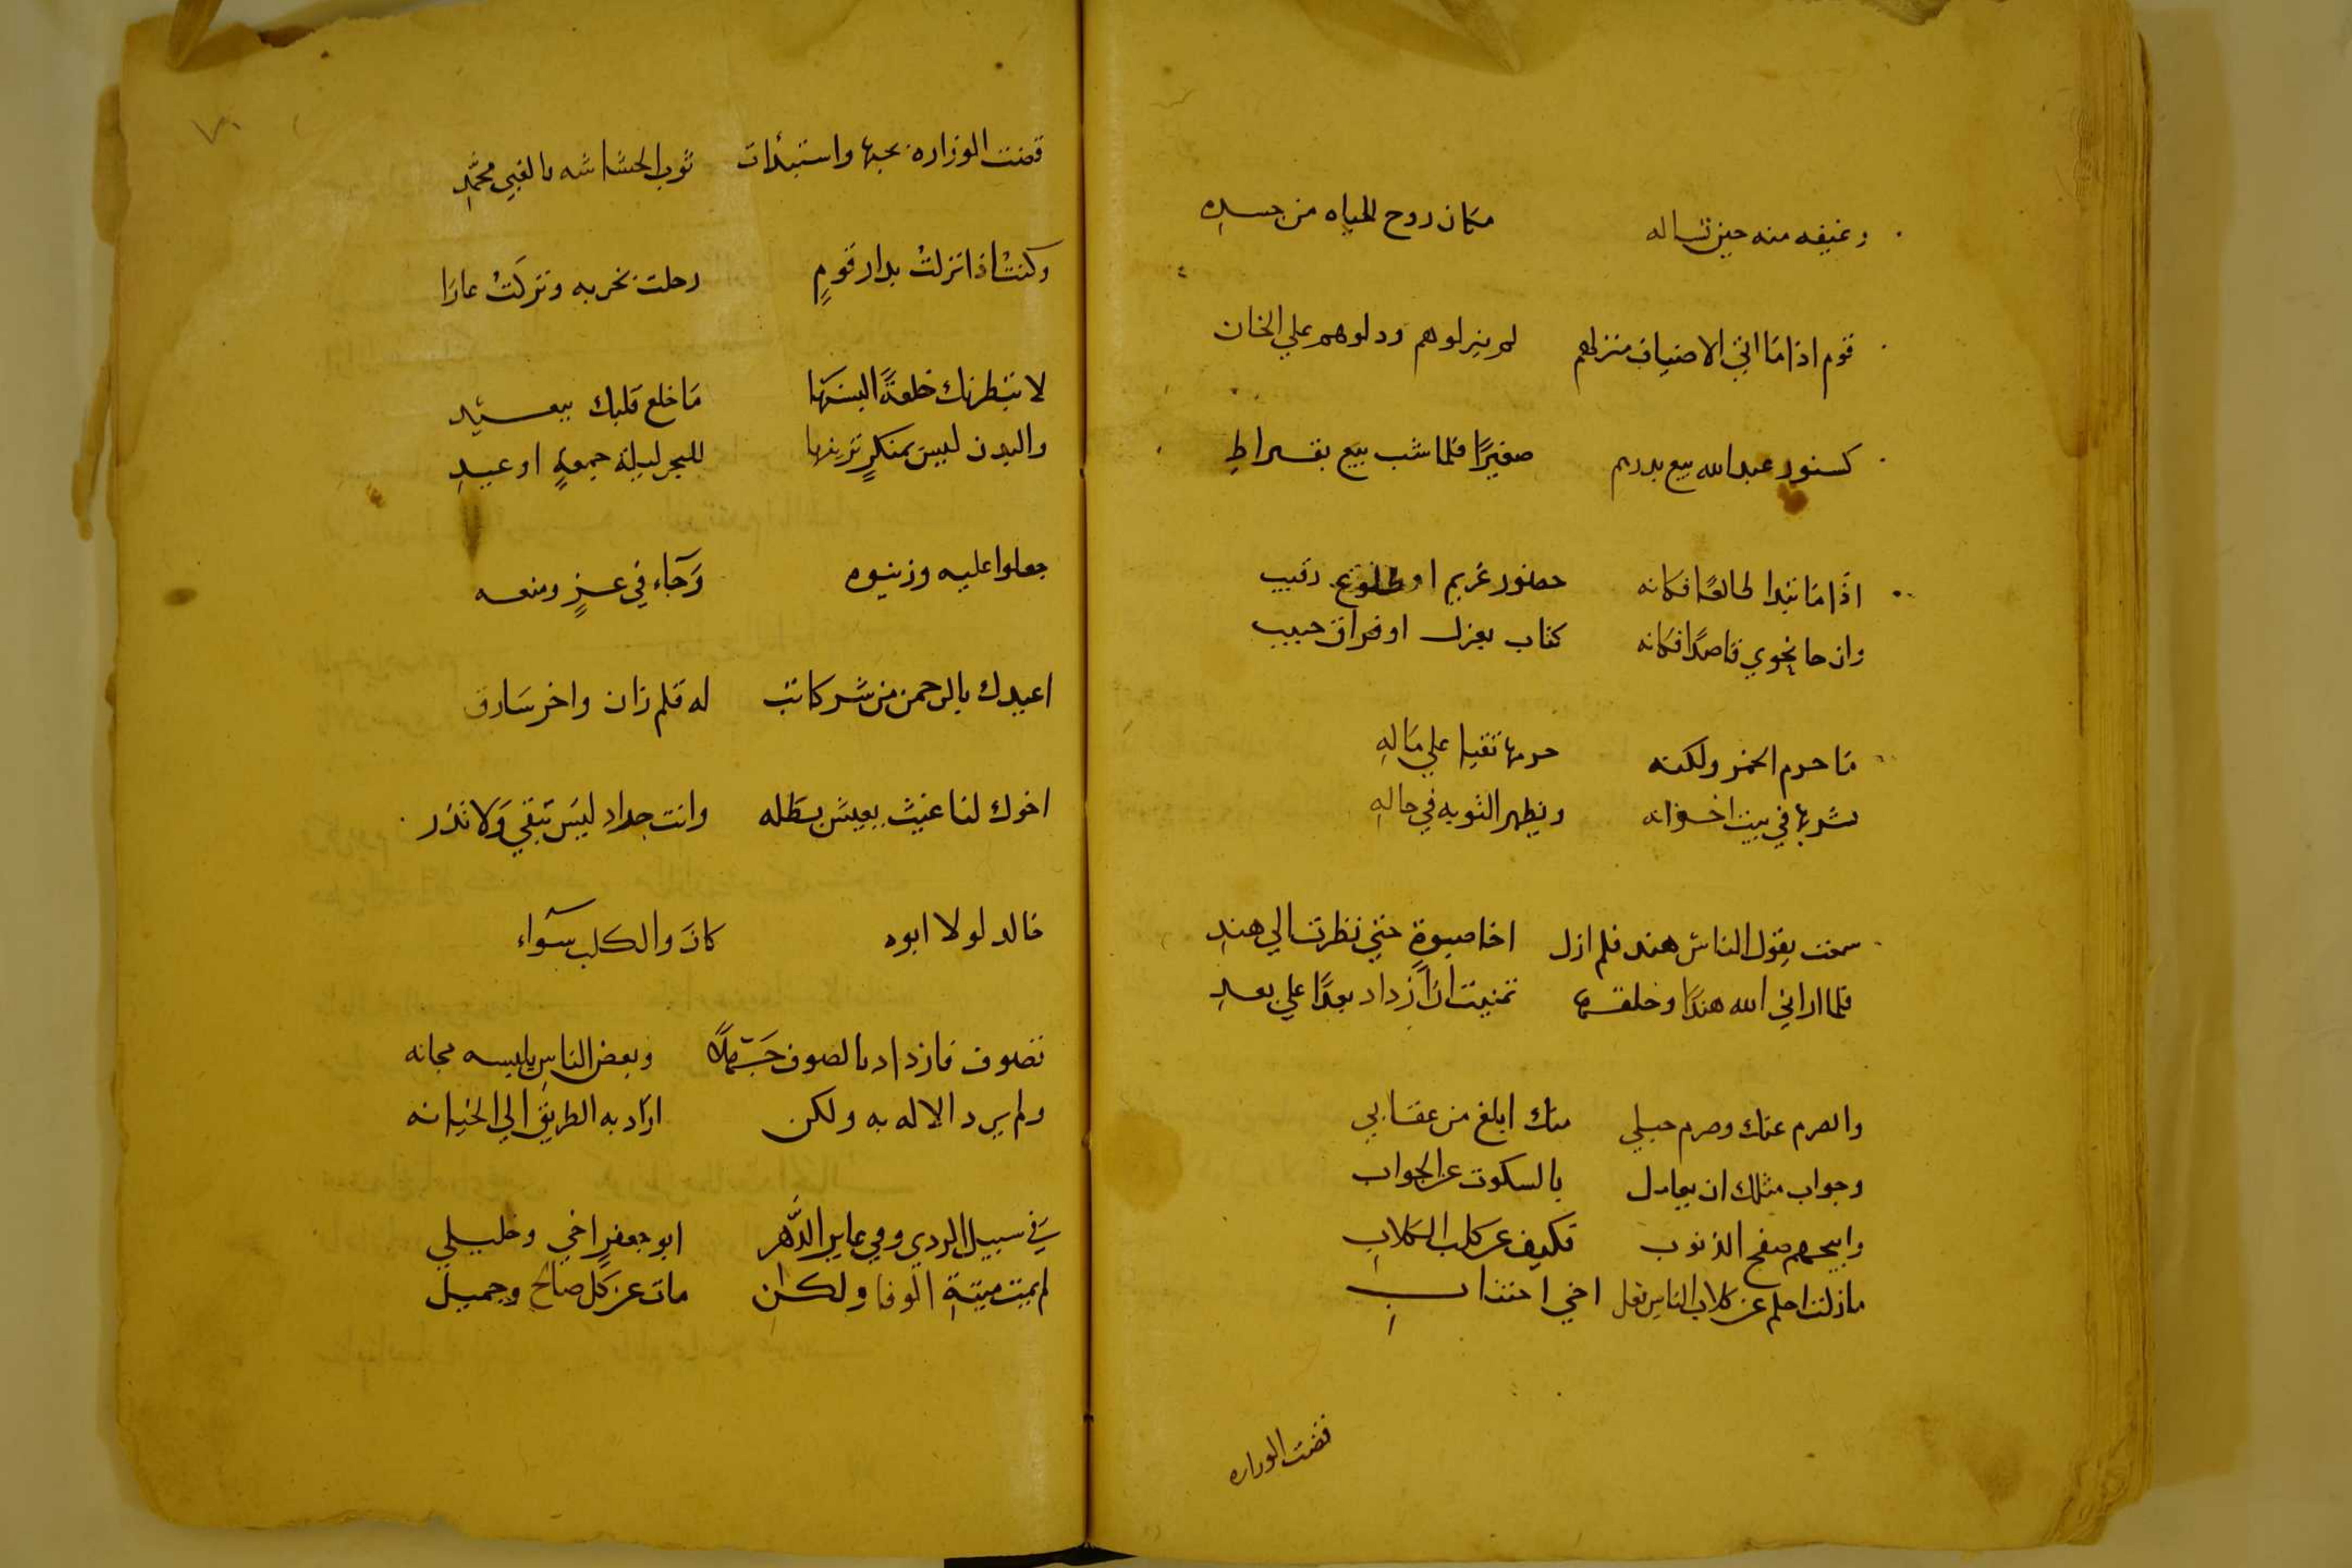 ورغيفه منه حين تساله مكان روح الحياه من جسده
قوم اذا ما اتي الاضياف منزلهم لم ينزلوهم ودلوهم علي الخان
كسنور عبد الله بيع بدرهم صغيرًا فلما شب بيع بقيراطِ
اذا ما تبدا طالعًا فكانه حضور غريم او طلوع رقيب
وان جا نحوي قاصدًا فكانه كتاب بعزل او فراق حبيب
ما حرم الخمر ولكنه حرمها تقيا علي مالهِ
يشربها في بيت اخوانه ويظهر التوبه في حالهِ
سمعت بقول الناس هند فلم ازل اخا صبوةٍ حتي نظرت الي هندِ
فلما اراني الله هندًا وخلقها تمنيت ان ازداد بعدًا علي بعدِ
والصرم عنك وصرم حبلي منك ابلغ من عقابي
وجواب مثلك ان يعادل بالسكوت عن الجواب
صفح الذنوب فكيف عن كلب الكلابِ
مازلت احلم عن كلاب الناس
قضت الوزاره
٧٠
قضت الوزاره نحبها واستبدلت ثوب الحشاشه بالغبي محمَّدِ
وكنتُ اذا نزلتُ بدار قومٍ رحلت بخربه وتركتُ عارًا
لا تبطرنك خلعةً البستها ما خلع قلبك ببعيدِ
والبدن ليس بمنكرٍ تزيينها للنحر ليلة جمعةٍ او عيدِ
حملوا عليه وزينوه وجآء في عزٍ ومنعه
اعيدك بالرحمن من شر كاتب له قلم زان واخر سارق
اخوك لنا غيث يعيش بطله وانت جراد ليس تبقي ولا تذر
خالد لولا ابوه كان والكلب سوآء
تصوف فازداد بالصوف جهلًا وبعض الناس يلبسه مجانه
ولم يرد الاله به ولكن اراد به الطريق الي الخيانه
في سبيل الردي وفي غابر الدَّهر ابو جعفرٍ اخي وخليلي
لم يمت ميتةِ الوفا ولكن مات عن كل صالحٍ وجميل